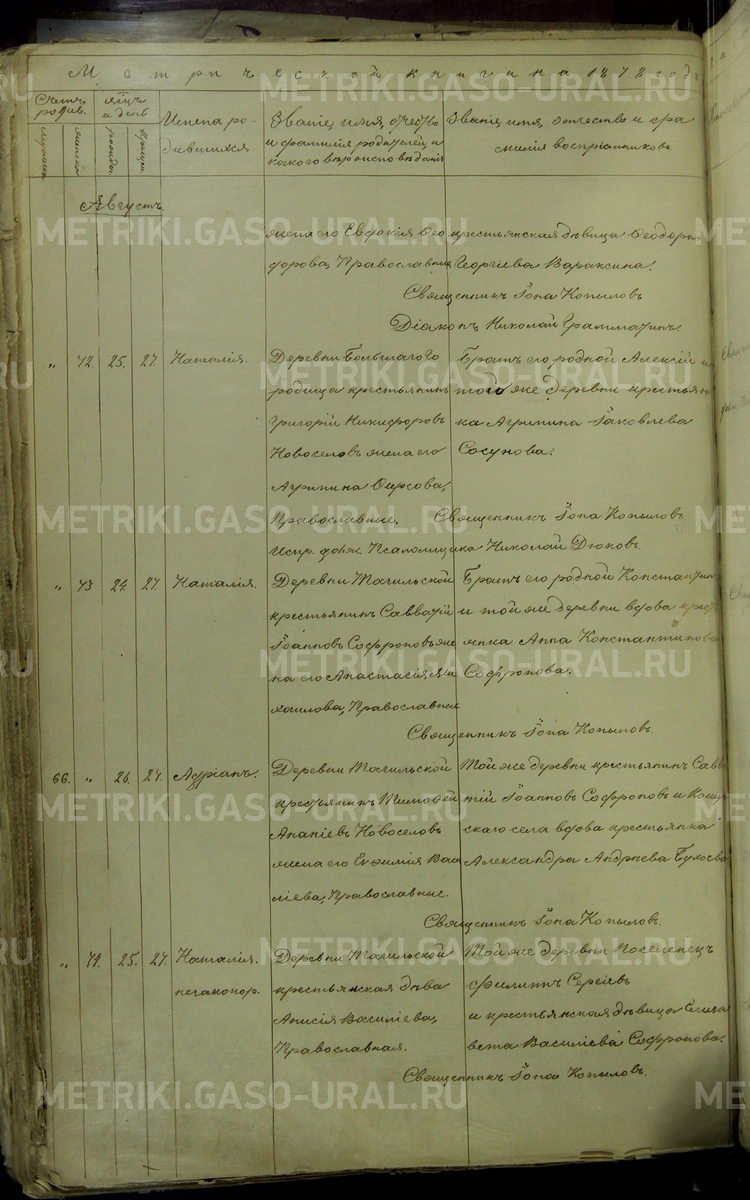 Метрической книги на 1878 годъ
Счетъ родив.
мѣсяцъ и день
Имена родившихся
Званіе, имя, отчество и фамилія родителей, и какого вѣроисповѣданія
Званіе, имя, отчество и фамилія воспріемниковъ
мужеска
женска
рожден.
крещен.
Августъ
жена его Евдокія Ѳео
дорова, Православные
крестьянская дѣвица Ѳеодора
Георгіева Вараксина.
Священникъ Іона Копыловъ
Діаконъ Николай Грамматинъ.
" 72. 25. 27. Наталія.
Деревни Большаго го
родища крестьянинъ
Григорій Никифоровъ
Новоселовъ жена его
Агрипина Фирсова,
Православные.
Братъ его родной Алексій и
той же деревни крестьян
ка Агрипина Іаковлева
Сосунова.
Священникъ Іона Копыловъ
Испр. долж. Псаломщика Николай Дюковъ.
" 73 24. 27. Наталія.
Деревни Тагильской
крестьянинъ Савватій
Іоанновъ Софроновъ же
на его Анастасія Ми
хаилова, Православные
Братъ его родной Константинъ
и той же деревни вдова крест
янка Анна Константинова
Софронова.
Священникъ Іона Копыловъ.
66. " 26. 27. Адріанъ.
Деревни Тагильской
крестьянинъ Тимофей
Ананіевъ Новоселовъ
жена его Евфимія Васи
ліева, Православные.
Той же деревни крестьянинъ Савва
тій Іоанновъ Софроновъ и
скаго села вдова крестьянка
Александра Андреева
Священникъ Іона Копыловъ.
" 74. 25. 27. Наталія.
незаконор.
Деревни Тагильской
крестьянская дѣва
Анисія Василіева,
Православная.
Той же деревни Поселенецъ
Филиппъ Сергіевъ
и крестьянская дѣвица Елиза
вета Василіева Софронова.
Священникъ Іона Копыловъ.
METRIKI.GASO-URAL.RU